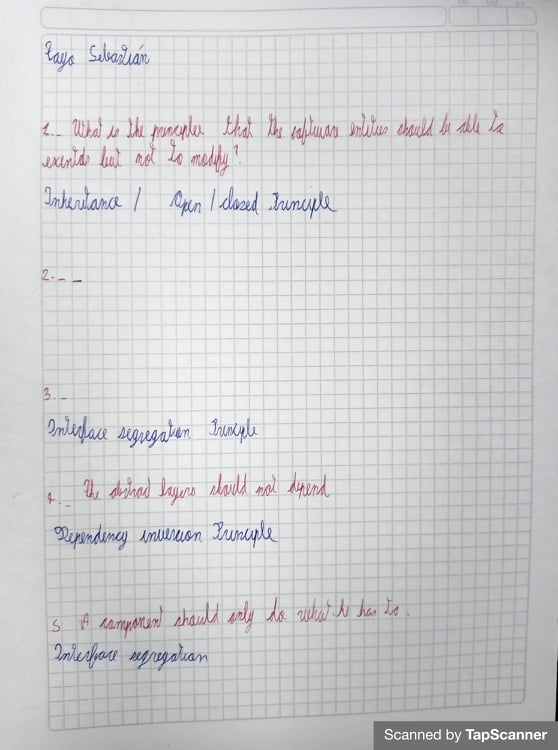 Tayo Sebastián
1.- What is the principle that the software entities should be able to
exentds but not to modify?
Inheritance / Open / closed Principle
2.- -
3.-
Interface segregation Principle
4.- the abstract layers should not depend
Dependency inversion Principle
5 A component should only do what he has to.
Interface segregation
Scanned by TapScanner